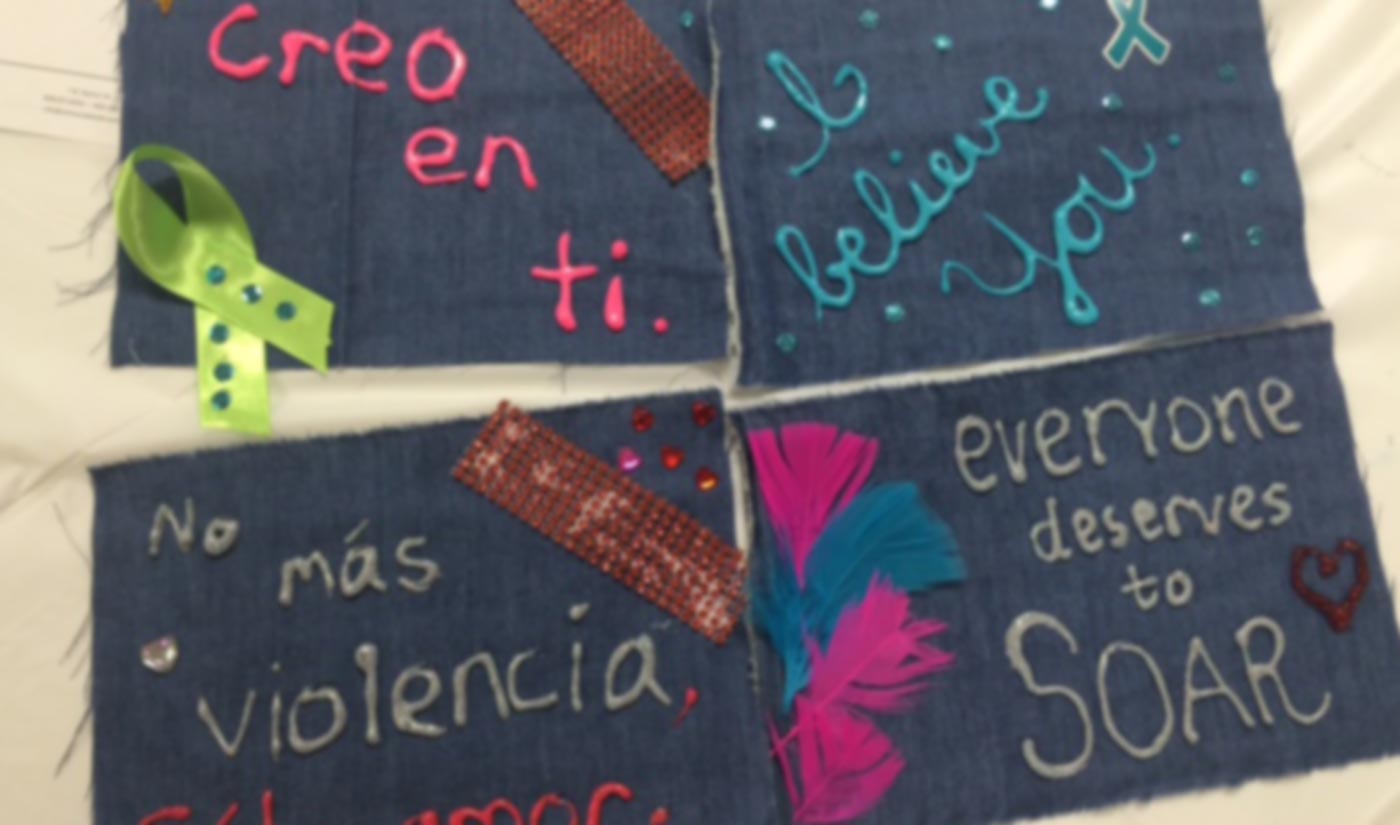 creo
en
ti.
I
believe
you
No
más
violencia,
amor.
everyone
deserves
to
SOAR